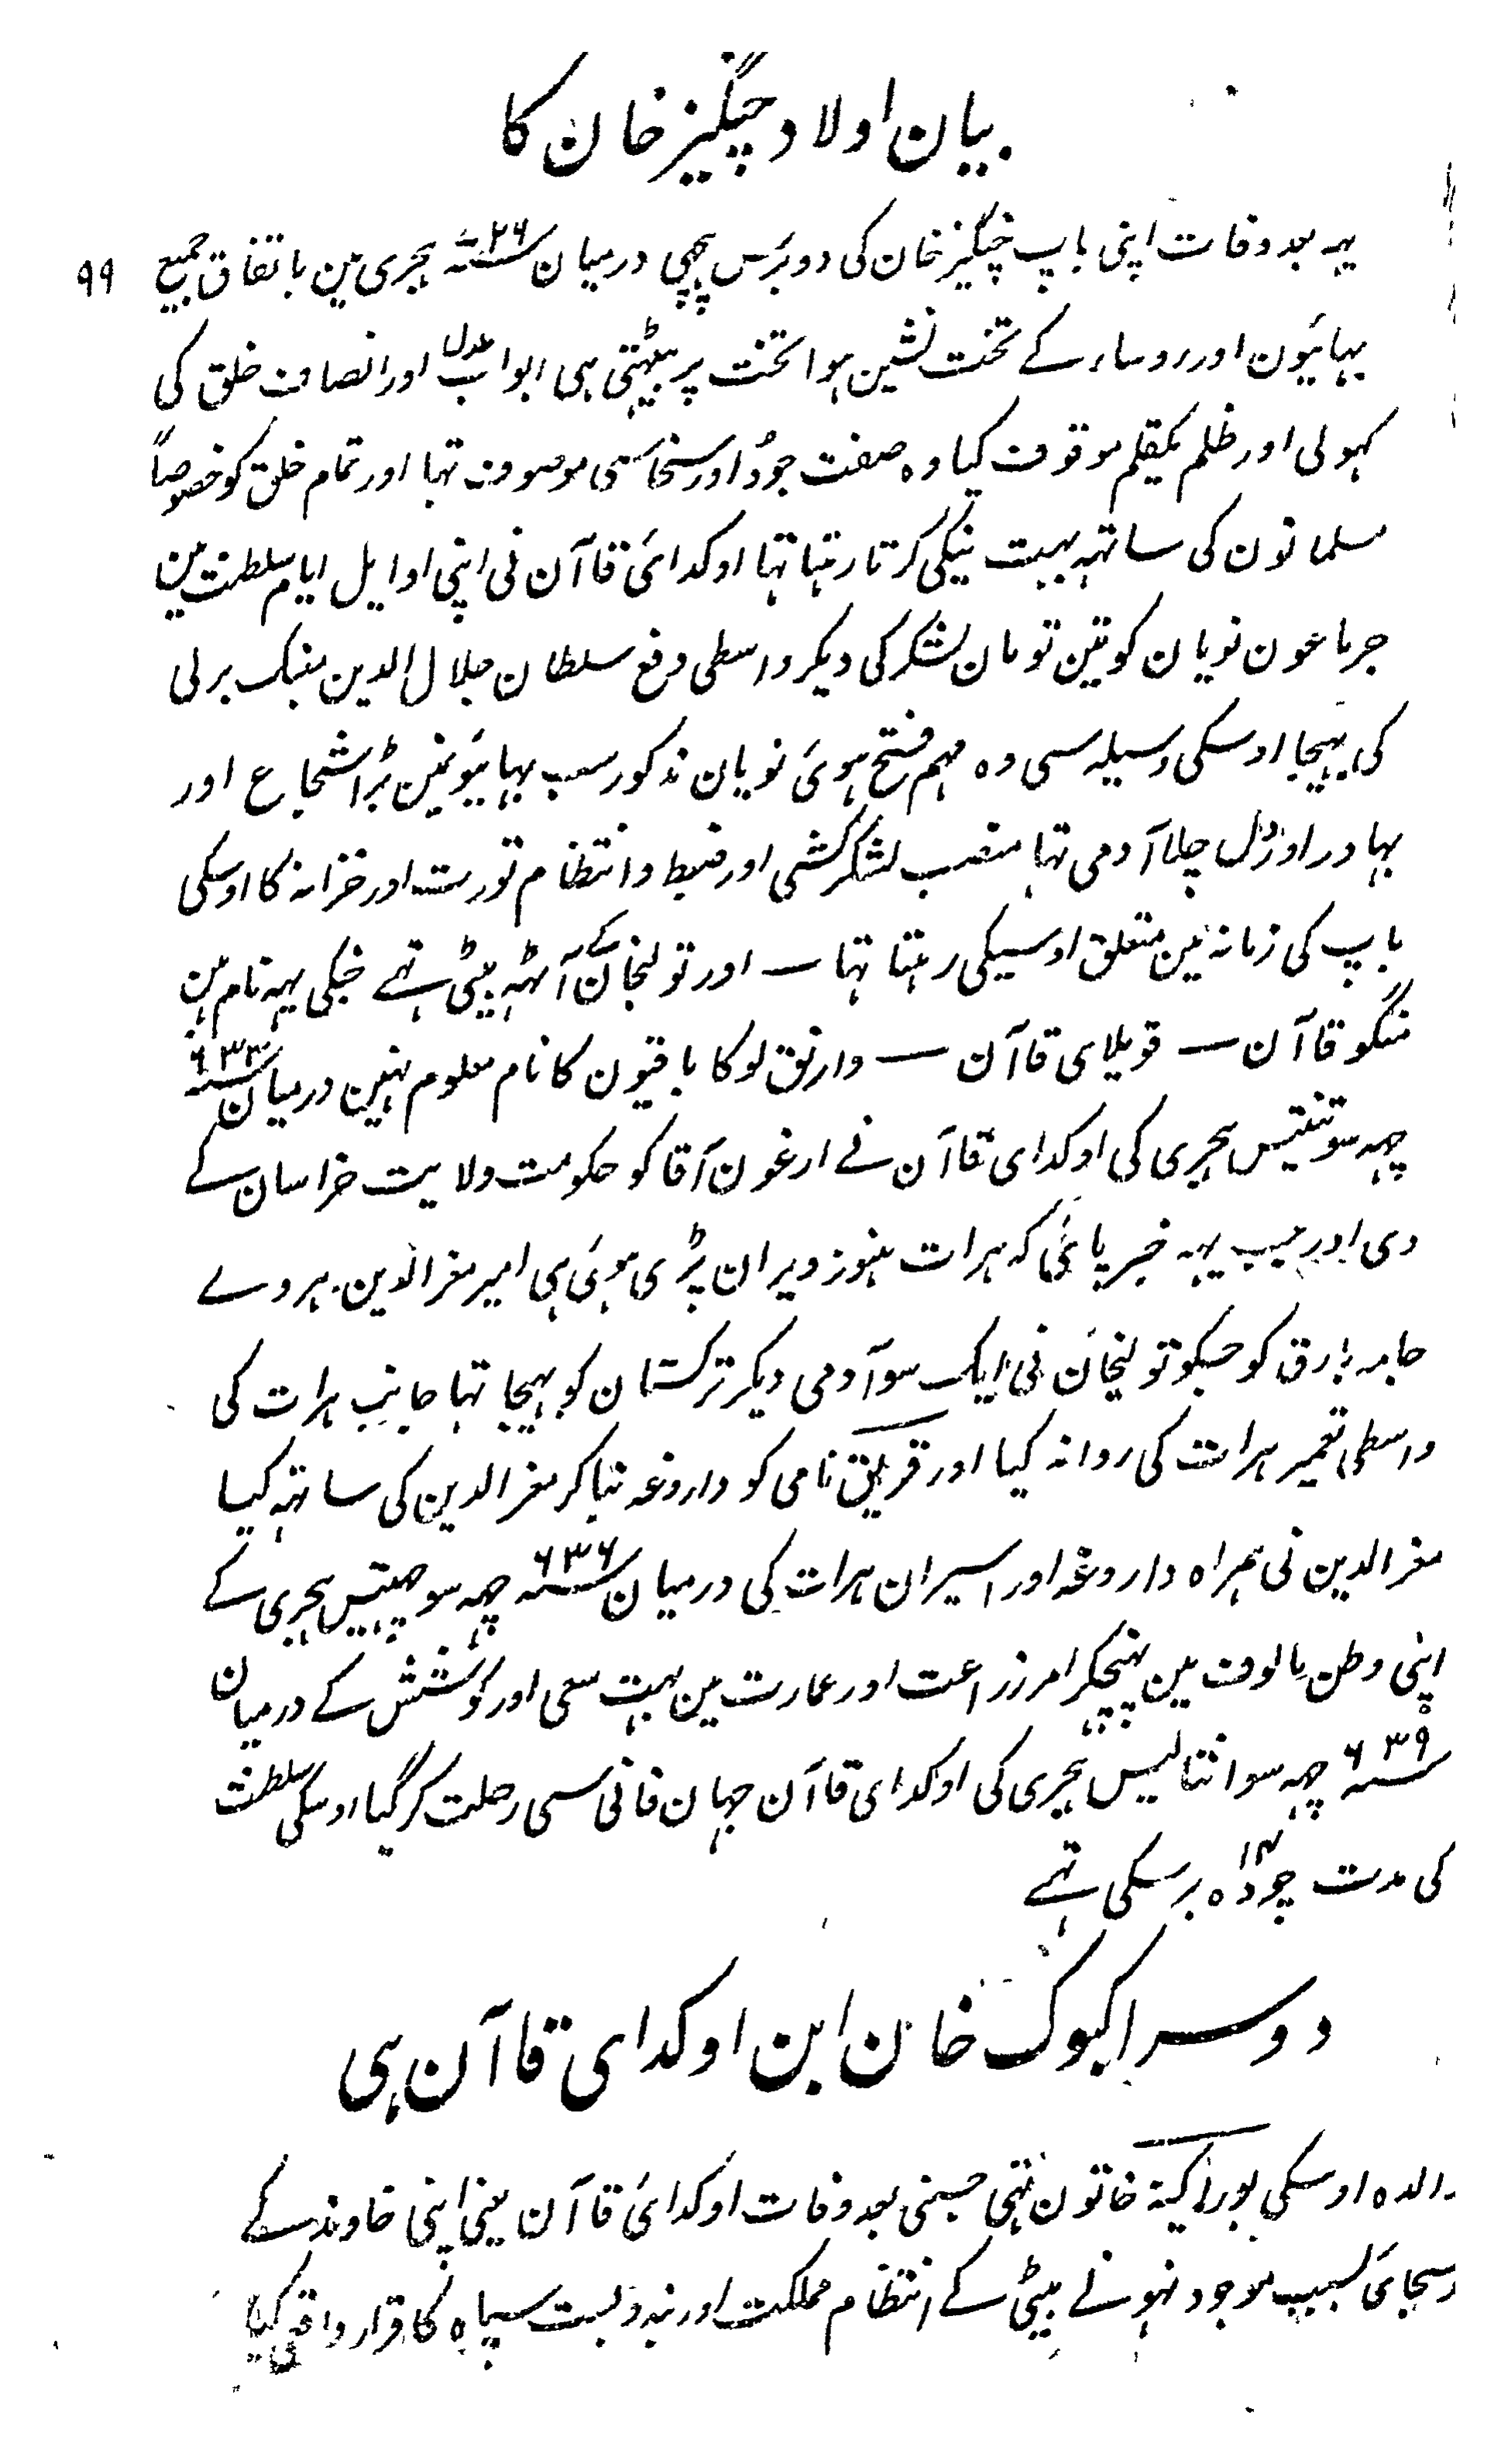 بیان اولاد چنگیز خان کا
یہہ بعد وفات اپنی باپ چنگیز خان کی دو برس پیچھی درمیان ۶۲۶؁ ہجری مین باتفاق جمیع ۹۹
بہائیون اور روساء کے تخت نشین ہوا تخت پر بیٹھتی ہی ابواب عدل اور انصاف خلق کی
کہولی اور ظلم یکقلم موقوف کیا وہ صفت جود اور سخا سی موصوف تہا اور تمام خلق کو خصوصاً
مسلمانون کی ساتہہ بہت نیکی کرتا رہتا تہا اوکدائ قاآن نی اپنی اوایل ایام سلطنت مین
جرماعون نویان کو تین تومان لشکر کی دیکر واسطی دفع سلطان جلال الدین منبک برلی
کی بہیجا اوسکی وسیلہ سی وہ مہم فتح ہوئ نویان مذکور سب بہائیونمین بڑا شجاع اور
بہادر اور دل چلا آدمی تہا منصب لشکر کشی اور ضبط و انتظام تورت اور خزانہ کا اوسکی
باپ کی زمانہ مین متعلق اوسیکی رہتا تہا — اور تولیخان کے آٹہہ بیٹی تہے جنکی یہہ نام ہین
منگو قاآن — قوبلای قاآن — وارنق لوکا باقیون کا نام معلوم نہین درمیان ۶۳۳؁
چہہ سو تینتیس ہجری کی اوکدای قاآن نے ارغون آقا کو حکومت ولایت خراسان کے
دی اور جب یہہ خبر پائی کہ ہرات ہنوز ویران پڑی ہوئی ہی امیر معزالدین ہروے
جامہ بارق کو جسکو تولیخان نی ایک سو آدمی دیکر ترکستان کو بہیجا تہا جانب ہرات کی
واسطی تعمیر ہرات کی روانہ کیا اور قریق نامی کو داروغہ بنا کر معز الدین کی ساتہہ کیا
معز الدین نی ہمراہ داروغہ اور اسیران ہرات کی درمیان ۶۳۶؁ چہہ سو چھتیس ہجری کے
اپنی وطن مالوف مین پہنچکر امر زراعت اور عمارت مین بہت سعی اور کوشش کے درمیان
۶۳۹؁ چہہ سو انتالیس ہجری کی اوکدای قاآن جہان فانی سی رحلت کر گیا اوسکی سلطنت
کی مدت چودہ ۱۴ برسکی تہے
دوسرا کیوک خان ابن اوکدای قاآن ہی
والدہ اوسکی بوراکینہ خاتون تہی جسنی بعد وفات اوکدائ قاآن یعنی اپنی خاوند کے
بسبب موجود نہونے بیٹی کے انتظام مملکت اور بندوبست سپاہ کا قرار واقعی کیا